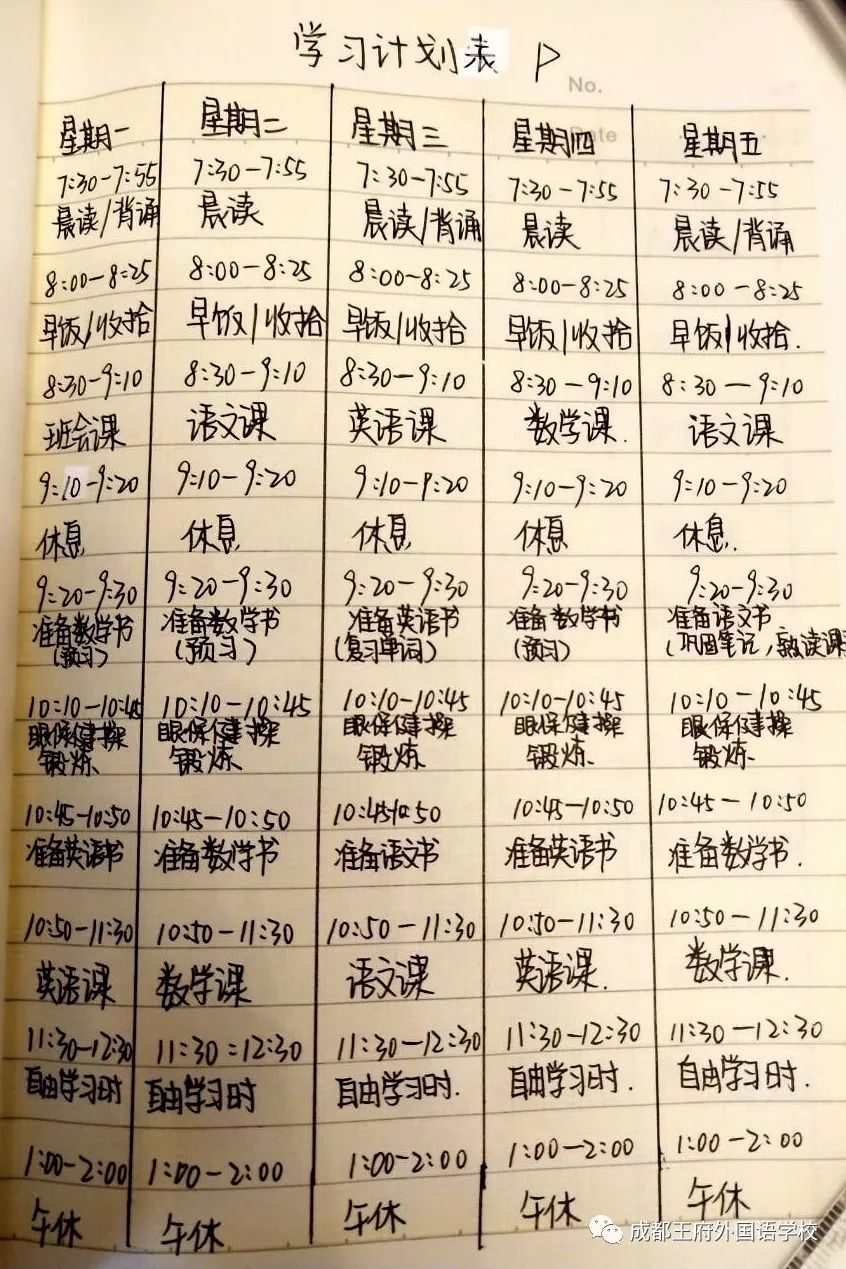 学习计划表
No.
Date
星期一 星期二 星期三 星期四 星期五
7:30-7:55 7:30-7:55 7:30-7:55 7:30-7:55 7:30-7:55
晨读/背诵 晨读 晨读/背诵 晨读 晨读/背诵
8:00-8:25 8:00-8:25 8:00-8:25 8:00-8:25 8:00-8:25
早饭/收拾 早饭/收拾 早饭/收拾 早饭/收拾 早饭/收拾.
8:30-9:10 8:30-9:10 8:30-9:10 8:30-9:10 8:30-9:10
班会课 语文课 英语课 数学课. 语文课
9:10-9:20 9:10-9:20 9:10-9:20 9:10-9:20 9:10-9:20
休息 休息 休息 休息 休息.
9:20-9:30 9:20-9:30 9:20-9:30 9:20-9:30 9:20-9:30
准备数学书 准备数学书 准备英语书 准备数学书 准备语文书
(预习) (预习) (复习单词) (预习) (巩固笔记,熟读课
10:10-10:45 10:10-10:45 10:10-10:45 10:10-10:45 10:10-10:45
眼保健操 眼保健操 眼保健操 眼保健操 眼保健操
锻炼 锻炼 锻炼 锻炼 锻炼
10:45-10:50 10:45-10:50 10:45-10:50 10:45-10:50 10:45-10:50
准备英语书 准备数学书 准备语文书 准备英语书 准备数学书.
10:50-11:30 10:50-11:30 10:50-11:30 10:50-11:30 10:50-11:30
英语课 数学课 语文课 英语课. 数学课.
11:30-12:30 11:30=12:30 11:30-12:30 11:30-12:30 11:30-12:30
自由学习时 自由学习时 自由学习时. 自由学习时. 自由学习时.
1:00-2:00 1:00-2:00 1:00-2:00 1:00-2:00 1:00-2:00
午休 午休 午休 午休 午休
成都王府外国语学校